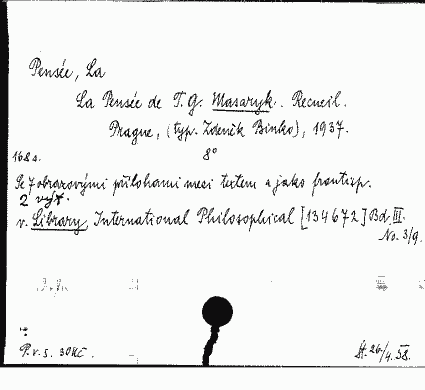 Pensée, La
La Pensée de T. G. Masaryk. Recueil.
Prague, (typ. Zdeněk Binko), 1937.
168 s. 8°
Se 7 obrazovými přílohami mezi textem a jako frontisp.
2 výt.
v. Library, International Philosophical [134672] Bd. III.
No. 3/9.
P. v. s. 30 Kč.
St. 26/4. 58.